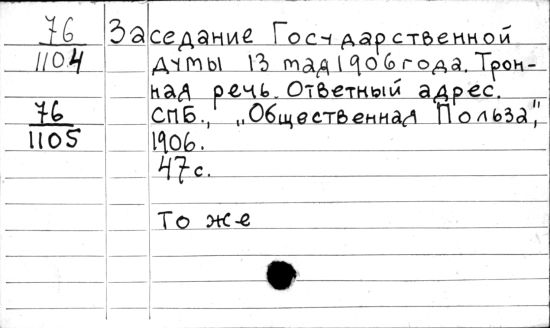 76
1104
Заседание Государственной
думы 13 мая 1906 года. Трон-
ная речь. Ответный адрес.
76
1105
СПБ., „Общественная Польза",
1906.
47 с.
То же